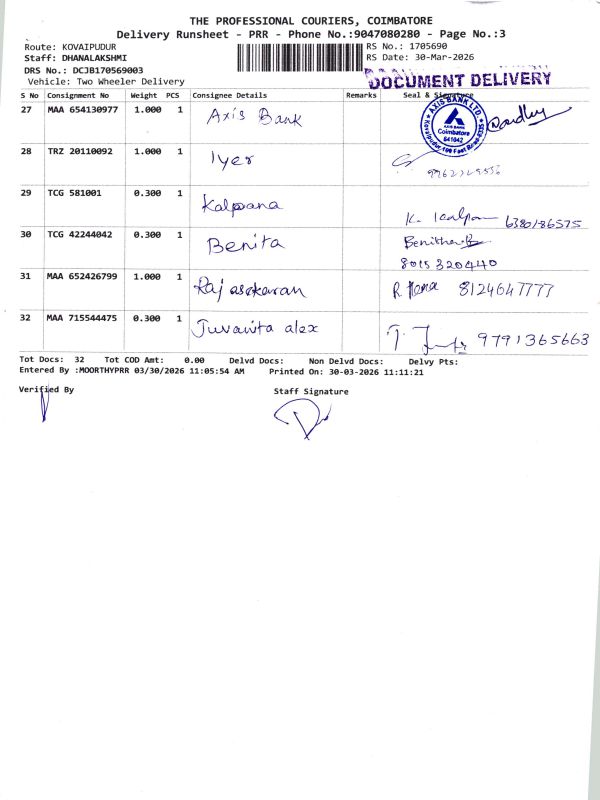 THE PROFESSIONAL COURIERS, COIMBATORE
Delivery Runsheet - PRR - Phone No.:9047080280 - Page No.:3
Route: KOVAIPUDUR
RS No.: 1705690
Staff: DHANALAKSHMI
RS Date: 30-Mar-2026
DRS No.: DCJB170569003
Vehicle: Two Wheeler Delivery
DOCUMENT DELIVERY
S No Consignment No Weight PCS Consignee Details Remarks Seal & Signature
27 MAA 654130977 1.000 1 Axis Bank
AXIS BANK LTD.
AXIS BANK
Coimbatore
641042
28 TRZ 20110092 1.000 1 Iyer
29 TCG 581001 0.300 1 Kalpana
K. 6380186575
30 TCG 42244042 0.300 1 Benita
8015320440
31 MAA 652426799 1.000 1 Rajasekaran R Hema 8124647777
32 MAA 715544475 0.300 1 Juvanita alex
9791365663
Tot Docs: 32 Tot COD Amt: 0.00 Delvd Docs: Non Delvd Docs: Delvy Pts:
Entered By :MOORTHYPRR 03/30/2026 11:05:54 AM Printed On: 30-03-2026 11:11:21
Verified By Staff Signature